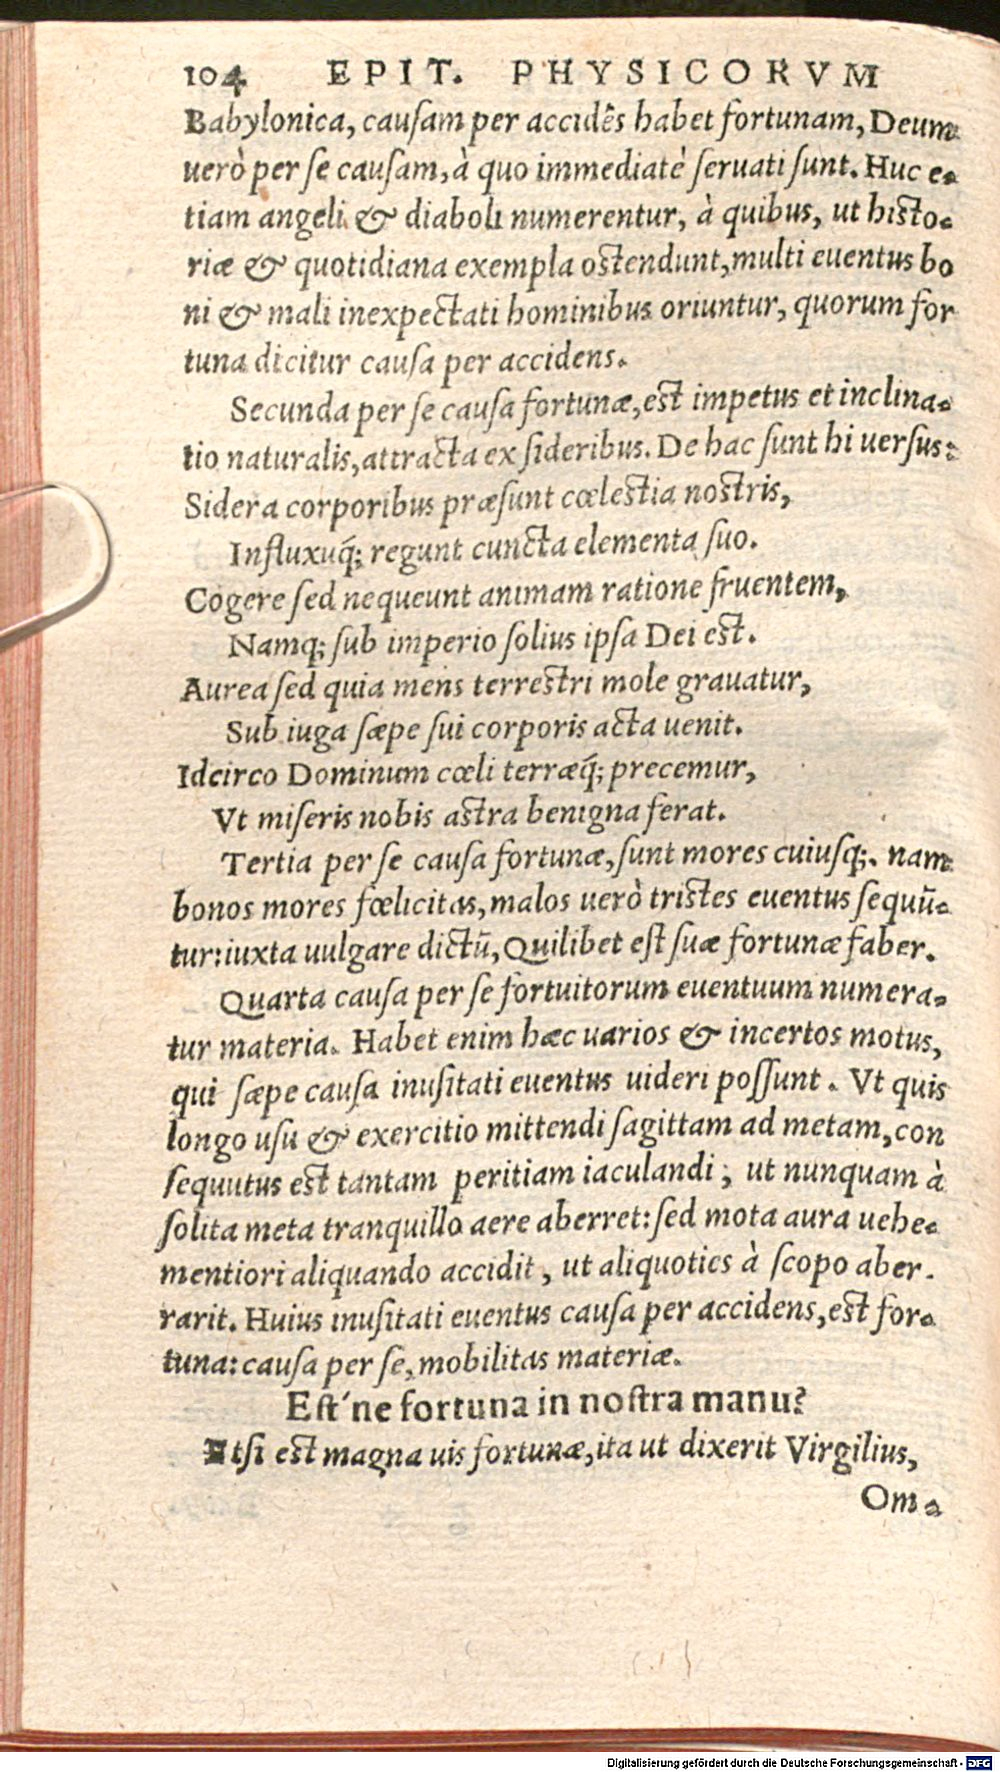 104 EPIT. PHYSICORVM
Babylonica, cauſam per accidẽs habet fortunam, Deum
uerò per ſe cauſam, à quo immediatè ſeruati ſunt. Huc e-
tiam angeli & diaboli numerentur, à quibus, ut hiſto-
riæ & quotidiana exempla oſtendunt, multi euentus bo
ni & mali inexpectati hominibus oriuntur, quorum for
tuna dicitur cauſa per accidens.
Secunda per ſe cauſa fortunæ, eſt impetus et inclina-
tio naturalis, attracta ex ſideribus. De hac ſunt hi uerſus:
Sidera corporibus præſunt cœleſtia noſtris,
Influxuq́; regunt cuncta elementa ſuo.
Cogere ſed nequeunt animam ratione fruentem,
Namq; ſub imperio ſolius ipſa Dei eſt.
Aurea ſed quia mens terreſtri mole grauatur,
Sub iuga ſæpe ſui corporis acta uenit.
Idcirco Dominum cœli terræq́; precemur,
Vt miſeris nobis aſtra benigna ferat.
Tertia per ſe cauſa fortunæ, ſunt mores cuiuſq;. nam
bonos mores fœlicitas, malos uerò triſtes euentus ſequũ-
tur: iuxta uulgare dictũ, Quilibet eſt ſuæ fortunæ faber.
Quarta cauſa per ſe fortuitorum euentuum numera-
tur materia. Habet enim hæc uarios & incertos motus,
qui ſæpe cauſa inuſitati euentus uideri poſſunt. Vt quis
longo uſu & exercitio mittendi ſagittam ad metam, con
ſequutus eſt tantam peritiam iaculandi; ut nunquam à
ſolita meta tranquillo aere aberret: ſed mota aura uehe-
mentiori aliquando accidit, ut aliquoties à ſcopo aber-
rarit. Huius inuſitati euentus cauſa per accidens, eſt for-
tuna: cauſa per ſe, mobilitas materiæ.
Eſt'ne fortuna in noſtra manu?
Etſi eſt magna uis fortunæ, ita ut dixerit Virgilius,
Om-
Digitalisierung gefördert durch die Deutsche Forschungsgemeinschaft - DFG